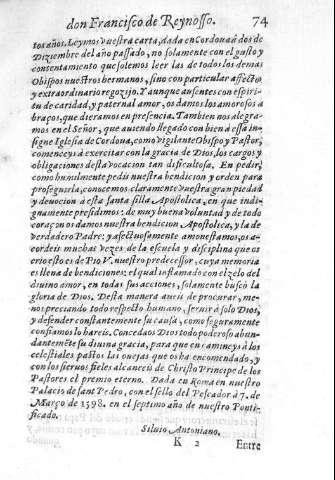 don Francisco de Reynosso. 74
tos años. Leymos vuestra carta, dada en Cordoua à dos de
Diziembre del año passado, no solamente con el gusto y
contentamiento que solemos leer las de todos los demas
Obispos nuestros hermanos, sino con particular affecto,
y extraordinario regozijo. Y aunque ausentes con espiri-
tu de caridad, y paternal amor, os damos los amorosos a
braços, que dieramos en presencia. Tambien nos alegra-
mos en el Señor, que auiendo llegado con bien à essa in-
signe Iglesia de Cordoua, como vigilante Obispo y Pastor,
comenceys à exercitar con la gracia de Dios, los cargos y
obligaciones desta vocacion tan dificultosa. En pedir,
como humilmente pedis nuestra bendicion y orden para
proseguirla, conocemos claramente vuestra gran piedad
y deuocion à esta santa silla Apostolica, en que indi-
gnamente presidimos: de muy buena voluntad y de todo
coraçon os damos nuestra bendicion Apostolica, y la de
verdadero Padre: y afectuosamente amonestamos, os a-
cordeis muchas vezes de la escuela y disciplina que os
crio esto es de Pio V. nuestro predecessor, cuya memoria
es llena de bendiciones: el qual inflamado con el zelo del
diuino amor, en todas sus acciones, solamente buscò la
gloria de Dios. Desta manera aueis de procurar, me-
nospreciando todo respecto humano, seruir à solo Dios,
y defender constantemente su causa, como seguramente
confiamos lo hareis. Concedaos Dios todo poderoso abun-
dantemẽte su diuina gracia, para que encamineys à los
celestiales pastos las ouejas que os ha encomendado, y
con los sieruos fieles alcanceis de Christo Principe de los
Pastores el premio eterno. Dada en Roma en nuestro
Palacio de sant Pedro, con el sello del Pescador à 7. de
Março de 1598. en el septimo año de nuestro Ponti-
ficado.
Siluio Antoniano.
K 2 Entre